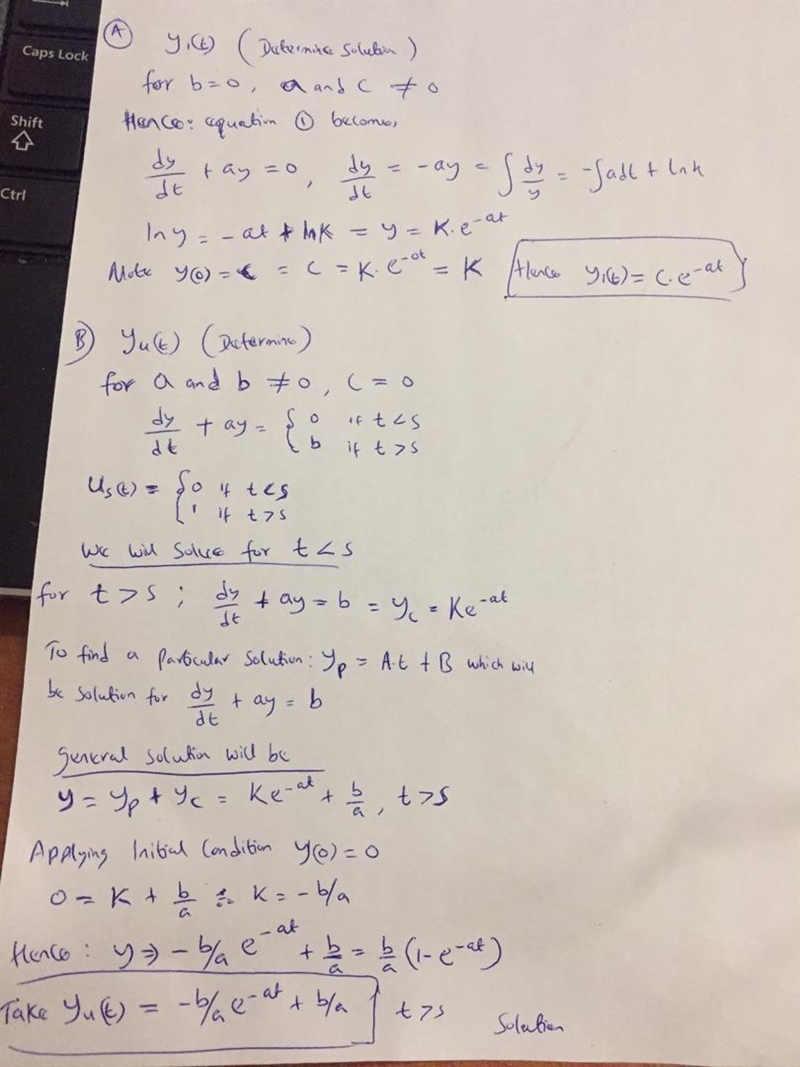 Caps Lock
Shift
Ctrl
(A) y₁(t) (Determine solution)
for b=0, a and c ≠ 0
Hence: equation ① becomes,
dy/dt + ay = 0, dy/dt = -ay = ∫ dy/y = -∫adt + lnk
ln y = -at + lnK = y = K.e^-at
Note y(0) = c = C = K.e^-at = K Hence y₁(t) = C.e^-at
B) yu(t) (Determine)
for a and b ≠ 0, C = 0
dy/dt + ay = { 0 if t<s
b if t>s
Us(t) = { 0 if t<s
1 if t>s
We will solve for t<s
for t>s ; dy/dt + ay = b = yc = Ke^-at
To find a particular solution: yp = A.t + B which will
be solution for dy/dt + ay = b
general solution will be
y = yp + yc = Ke^-at + b/a, t>s
Applying Initial Condition y(0)=0
0 = K + b/a ∴ K = -b/a
Hence: y ⇒ -b/a e^-at + b/a = b/a (1-e^-at)
Take yu(t) = -b/a e^-at + b/a t>s Solution